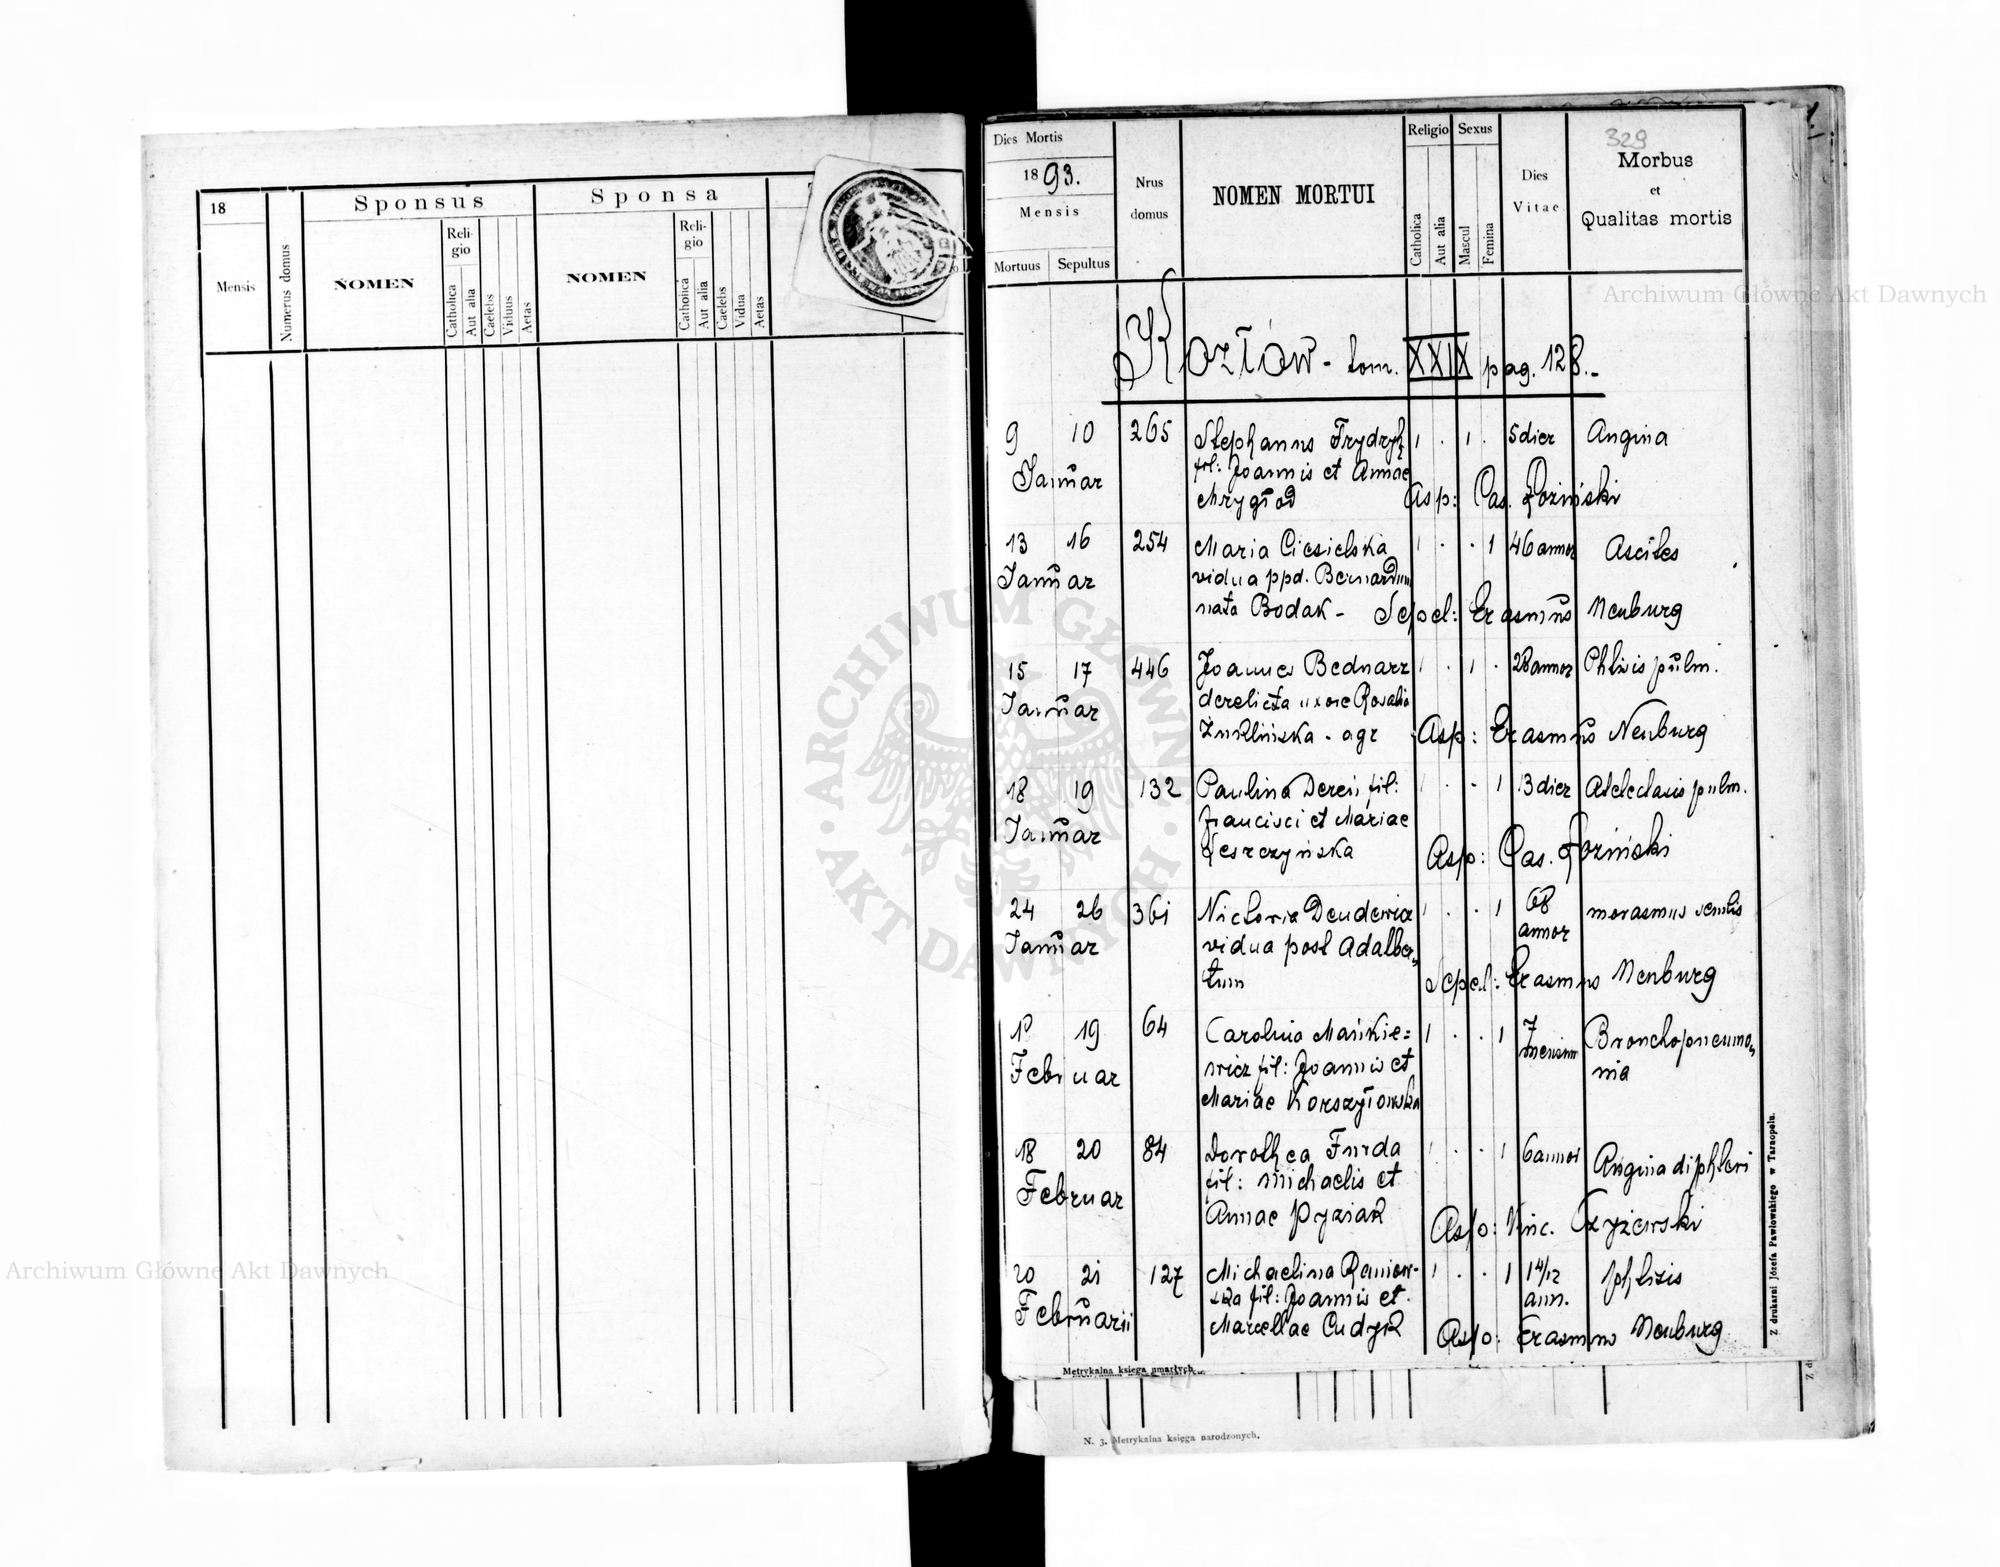 18
Mensis
Numerus domus
Sponsus
NOMEN
Reli-
gio
Catholica
Aut alia
Caelebs
Viduus
Aetas
Sponsa
NOMEN
Reli-
gio
Catholica
Aut alia
Caelebs
Vidua
Aetas
Dies Mortis
1893.
Mensis
Mortuus
Sepultus
Nrus
domus
NOMEN MORTUI
Religio
Catholica
Aut alia
Sexus
Mascul
Femina
Dies
Vitae
329
Morbus
et
Qualitas mortis
1.
Archiwum Główne Akt Dawnych
Kozłów - tom. XXIX pag. 128.-
9 10 265 Stephanus Frydryh 1 . 1 . 5 dier Angina
Januar
fil: Joannis et Annae
Mrygłod Asp: Cas. Łoziński
13 16 254 Maria Ciesielska 1 . . 1 46 annor Ascites
Januar
vidua ppd. Bernardum
nata Bodak - Sepel: Erasmus Neuburg
15 17 446 Joannes Bednarz 1 . 1 . 28 annor Phtisis pulm.
Januar
derelicta uxore Rosalia
Żuklińska - agr Asp: Erasmus Neuburg
18 19 132 Paulina Dereń fil: 1 . . 1 13 dier Atelectasis pulm.
Januar
Francisci et Mariae
Leszczyńska Asp: Cas. Łoziński
24 26 361 Victoria Dendewicz 1 . . 1 68 annor marasmus senilis
Januar
vidua post Adalber-
tum Sepel: Erasmus Neuburg
19 64 Carolina Mańkie= 1 . . 1 7 mensium Bronchopneumo-
nia
Februar
wicz fil: Joannis et
Mariae Korszyłowska
18 20 84 Dorothea Furda 1 . . 1 6 annor Angina diphteri
Februar
fil: Michaelis et
Annae Pyziak Asp: Vinc. Czyżewski
20 21 127 Michaelina Raniow- 1 . . 1 1 4/12 ann. phtisis
Februarii
ska fil: Joannis et
Marcellae Cudyk Asp: Erasmus Neuburg
Z drukarni Józefa Pawłowskiego w Tarnopolu.
Metrykalna księga zmarłych.
N. 3. Metrykalna księga narodzonych.
Archiwum Główne Akt Dawnych
ARCHIWUM GŁÓWNE · AKT DAWNYCH ·